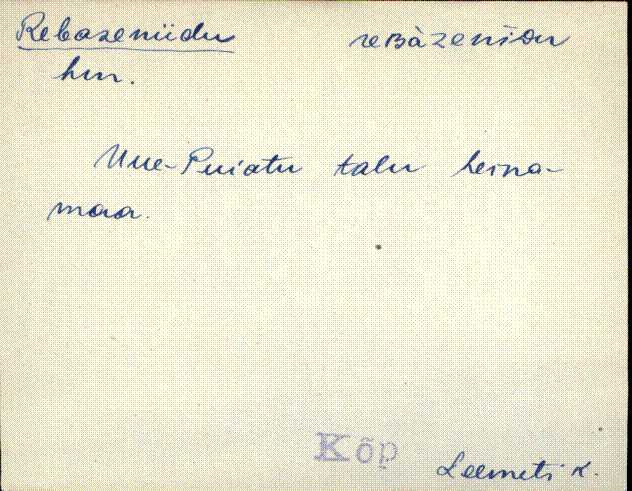 Rebaseniidu reʙàzenīᴅu
hm.
Uue-Puiatu talu heina-
maa.
Kõp
Leemeti k.